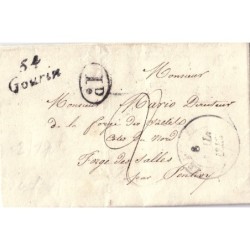 54
Gourin
1D.
Monsieur
Monsieur Mario Directeur
de la forge des Salles
Côtes du Nord
Forge des Salles
par Pontivy
8